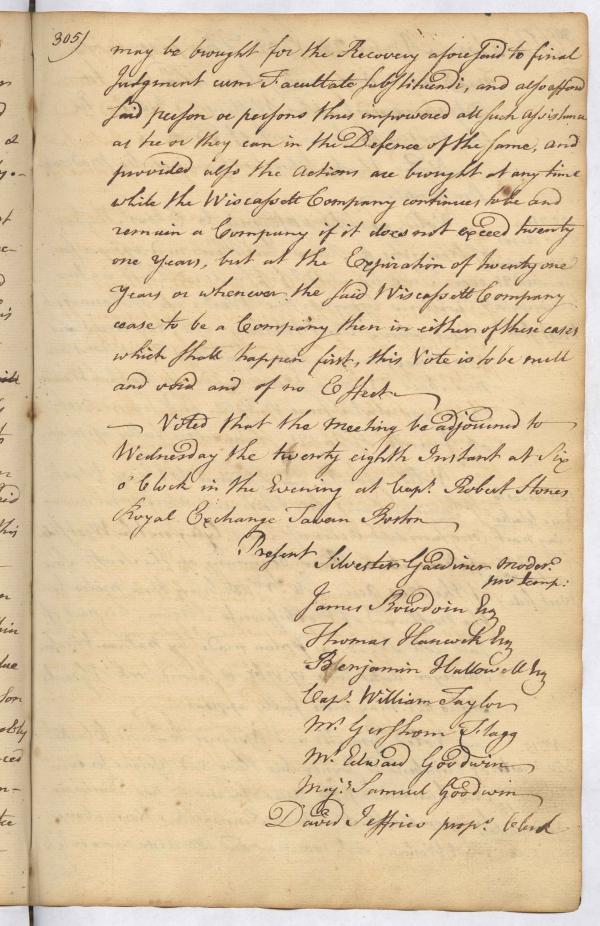 305)
may be brought for the Recovery aforesaid to final
Judgment cum Facultate substituendi, and also afford
said person or persons thus impowered all such assistance
as he or they can in the Defence of the same, and
provided also the actions are brought at any time
while the Wiscassett Company continues to be and
remain a Company if it does not exceed twenty
one Years, but at the Expiration of twenty one
Years or whenever the said Wiscassett Company
cease to be a Company then in either of these cases
which shall happen first, this Vote is to be null
and void and of no Effect
Voted that the meeting be adjourned to
Wednesday the twenty eighth Instant at Six
o'Clock in the Evening at Capt. Robert Stones
Royal Exchange Tavern Boston
Present Silvester Gardiner Moder.
pro temp:
James Bowdoin Esq
Thomas Hancock Esq
Benjamin Hallowell Esq
Capt. William Taylor
Mr. Gershom Flagg
Mr. Edward Goodwin
Majr. Samuel Goodwin
David Jeffries props. Clerk